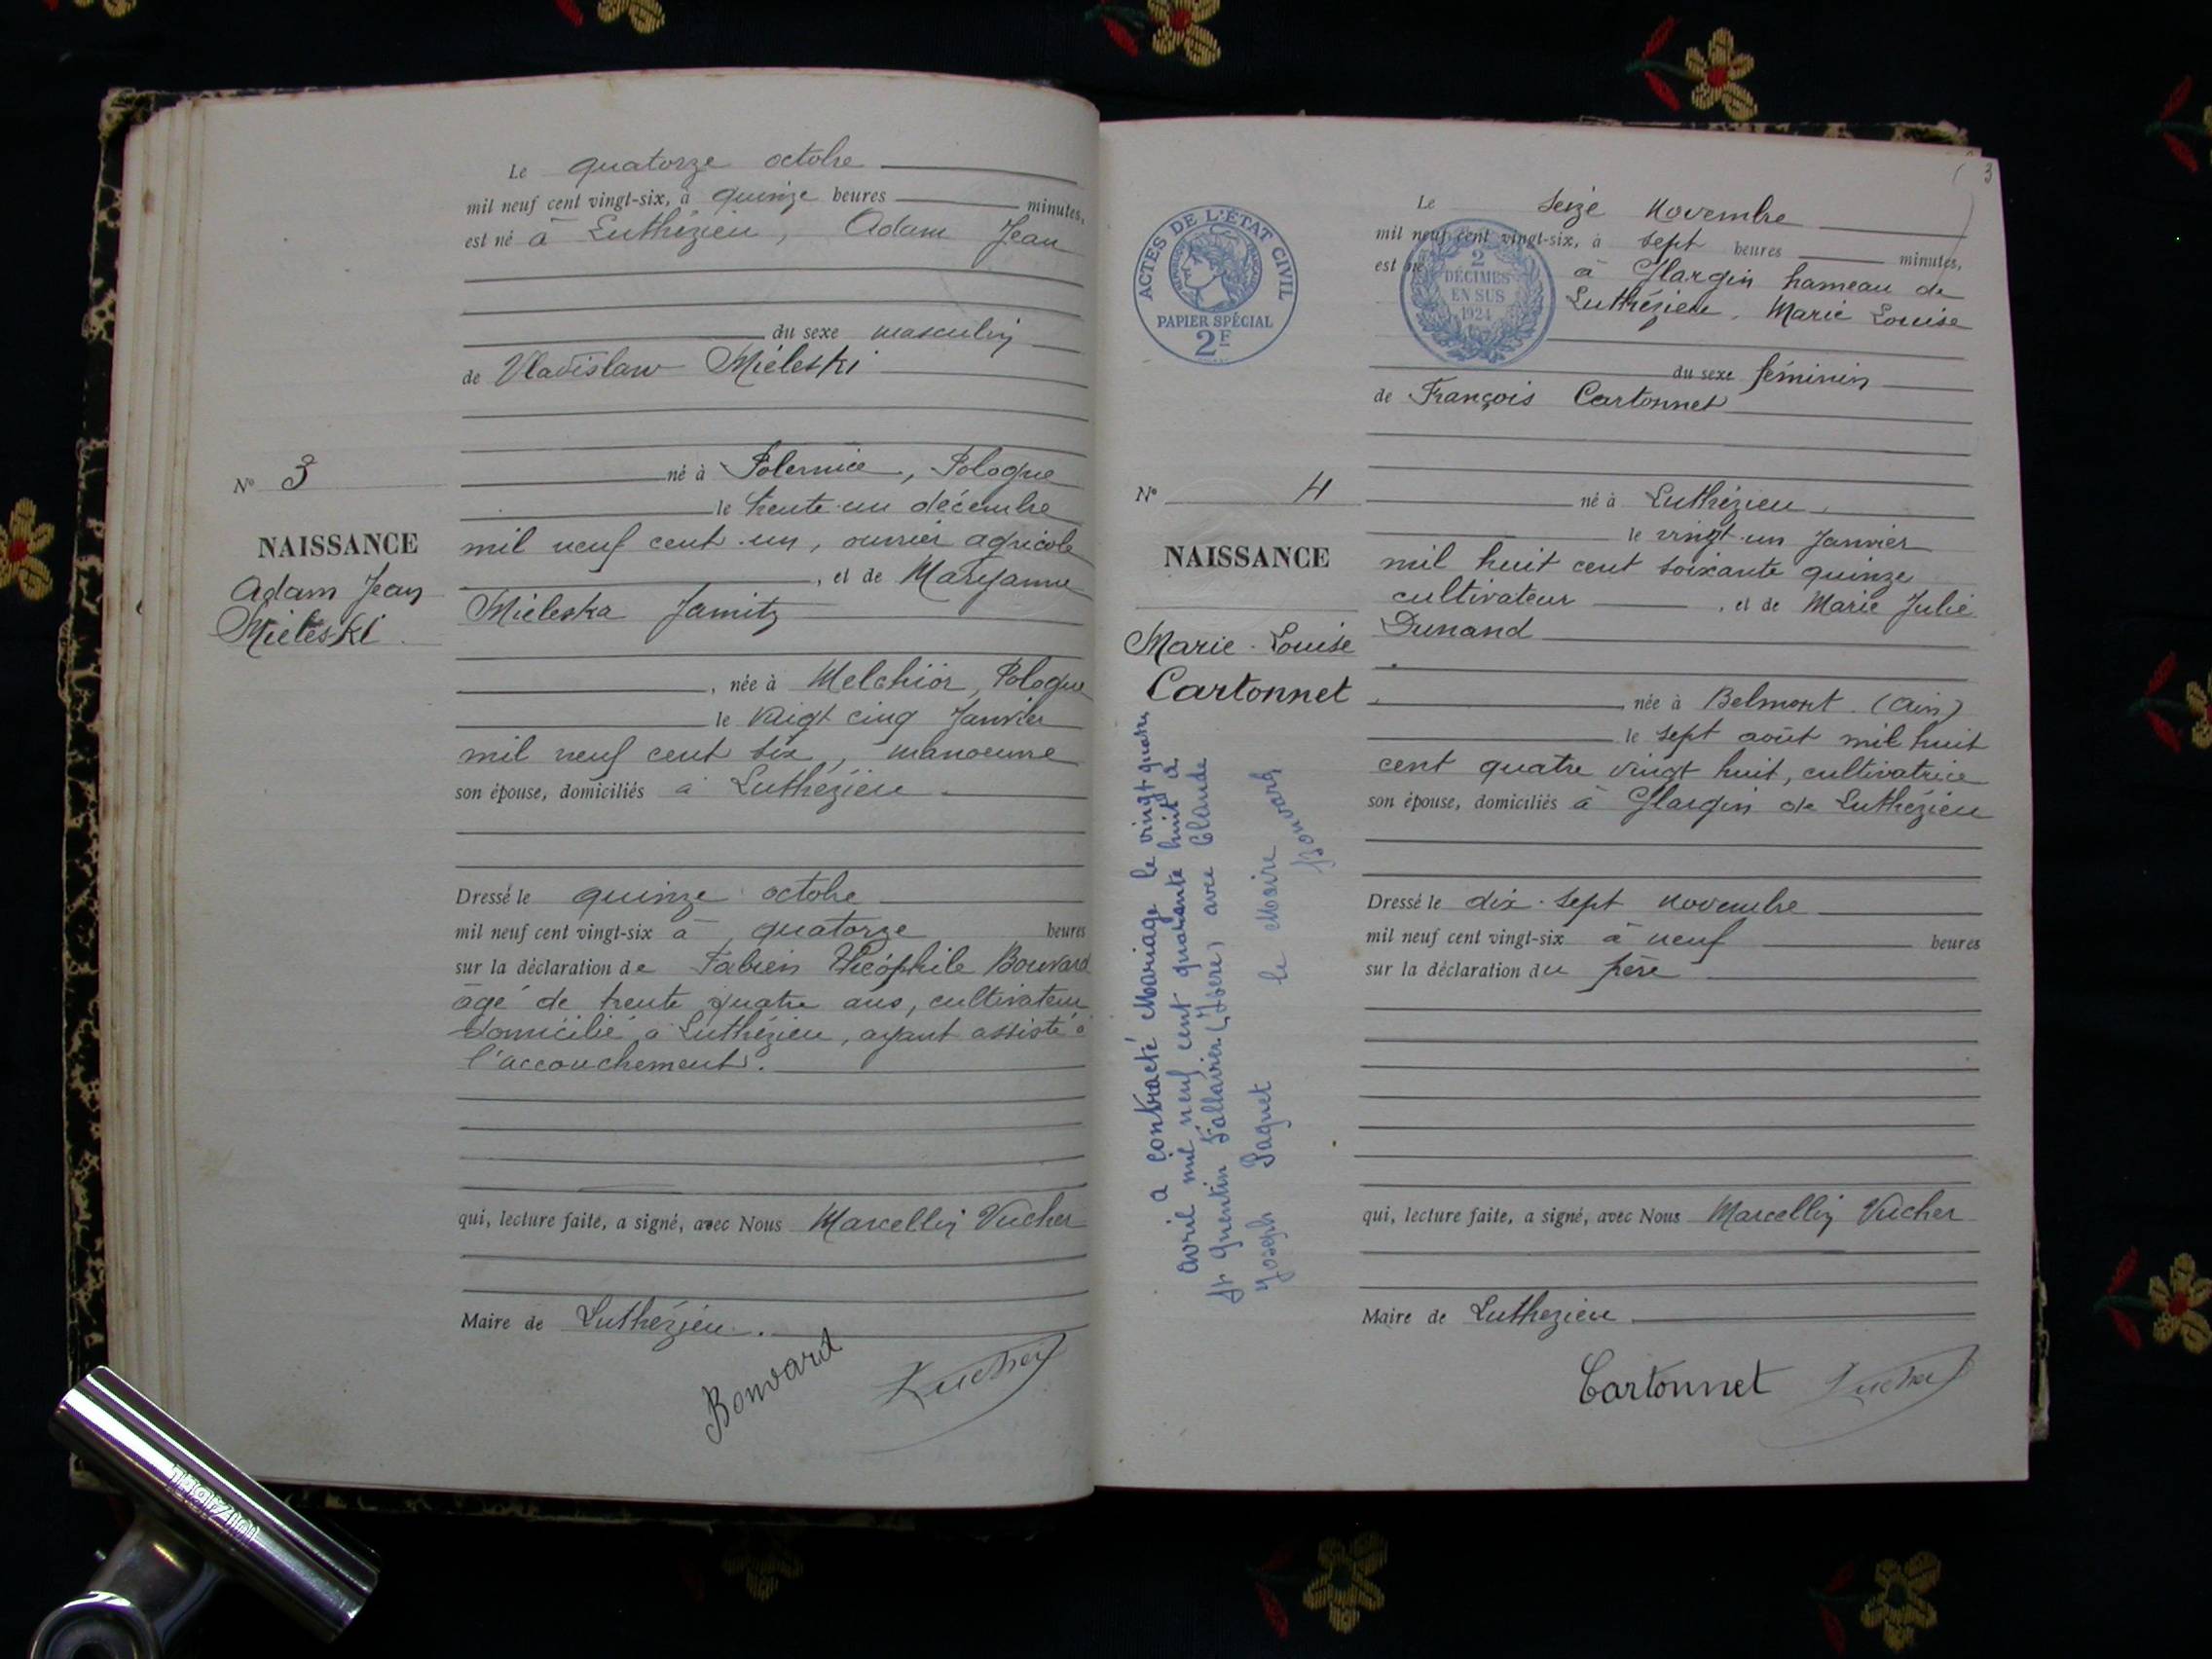 Le quatorze octobre
mil neuf cent vingt-six, à quinze heures minutes,
est né à Luthézieu, Adam Jean
du sexe masculin
de Vladislaw Miéleski
né à Polernice, Pologne
le trente-un décembre
mil neuf cent un, ouvrier agricole
, et de Maryanne
Mieleska Jamitz
, née à Melchior, Pologne
le vingt cinq Janvier
mil neuf cent six, manoeuvre
son épouse, domiciliés à Luthézieu.
Dressé le quinze octobre
mil neuf cent vingt-six à quatorze heures
sur la déclaration de Fabien Théophile Bouvard
âgé de trente quatre ans, cultivateur
domicilié à Luthézieu, ayant assisté à
l'accouchement.
qui, lecture faite, a signé, avec Nous Marcellin Vucher
Maire de Luthézieu.
Bonvard Vucher
N° 3
NAISSANCE
Adam Jean
Mieleski
3
ACTES DE L'ÉTAT CIVIL
PAPIER SPÉCIAL
2F
2
DÉCIMES
EN SUS
1924
Le seize Novembre
mil neuf cent vingt-six, à sept heures minutes,
est né à Glargin hameau de
Luthézieu, Marie Louise
du sexe féminin
de François Cartonnet
né à Luthézieu,
le vingt-un Janvier
mil huit cent soixante quinze
cultivateur , et de Marie Julie
Dunand
née à Belmont (Ain)
le sept août mil huit
cent quatre vingt huit, cultivatrice
son épouse, domiciliés à Glargin de Luthézieu
Dressé le dix-sept Novembre
mil neuf cent vingt-six à neuf heures
sur la déclaration du père
qui, lecture faite, a signé, avec Nous Marcellin Vucher
Maire de Luthezieu.
Cartonnet Vucher
N° 4
NAISSANCE
Marie-Louise
Cartonnet
a contracté Mariage le vingt-quatre
avril mil neuf cent quarante huit à
St Quentin Fallavier (Isère) avec Claude
Joseph Paquet le Maire
Bonvard